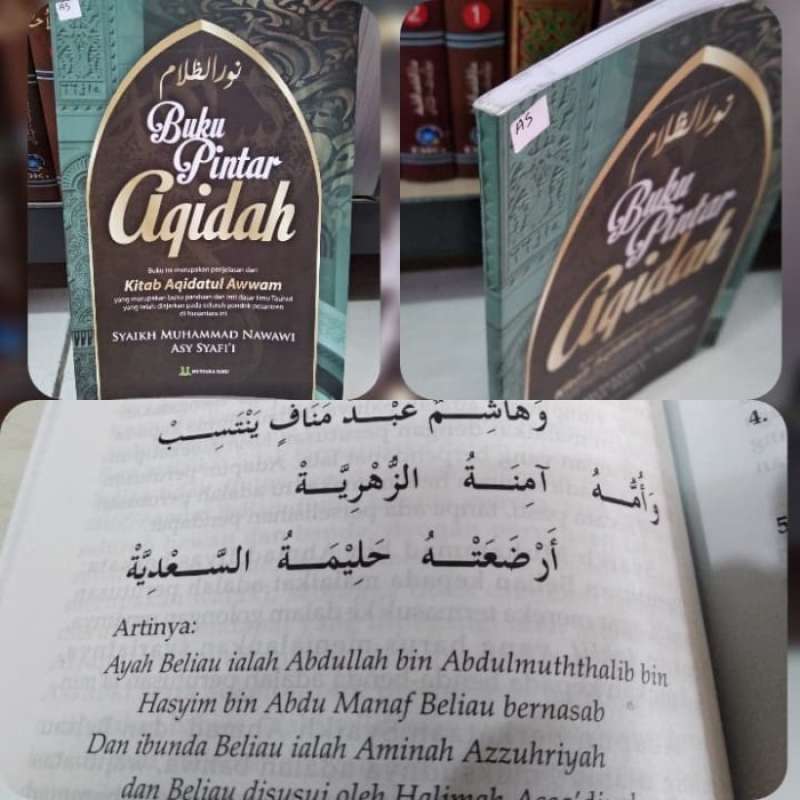 AS
نور الظلام
Buku
Pintar
Aqidah
Buku ini merupakan penjelasan dari
Kitab Aqidatul Awwam
yang merupakan buku panduan dan inti dasar Ilmu Tauhid
yang telah diajarkan pada seluruh pondok pesantren
di Nusantara ini
SYAIKH MUHAMMAD NAWAWI
ASY SYAFI'I
MUTIARA ILMU
2
1
AS
نور الظلام
Buku
Pintar
Aqidah
وَهَاشِمُ عَبْدِ مَنَافٍ يَنْتَسِبْ
وَأُمُّهُ آمِنَةُ الزُّهْرِيَّةْ
أَرْضَعَتْهُ حَلِيْمَةُ السَّعْدِيَّةْ
Artinya:
Ayah Beliau ialah Abdullah bin Abdulmuththalib bin
Hasyim bin Abdu Manaf Beliau bernasab
Dan ibunda Beliau ialah Aminah Azzuhriyah
dan Beliau disusui oleh Halimah
4.
5